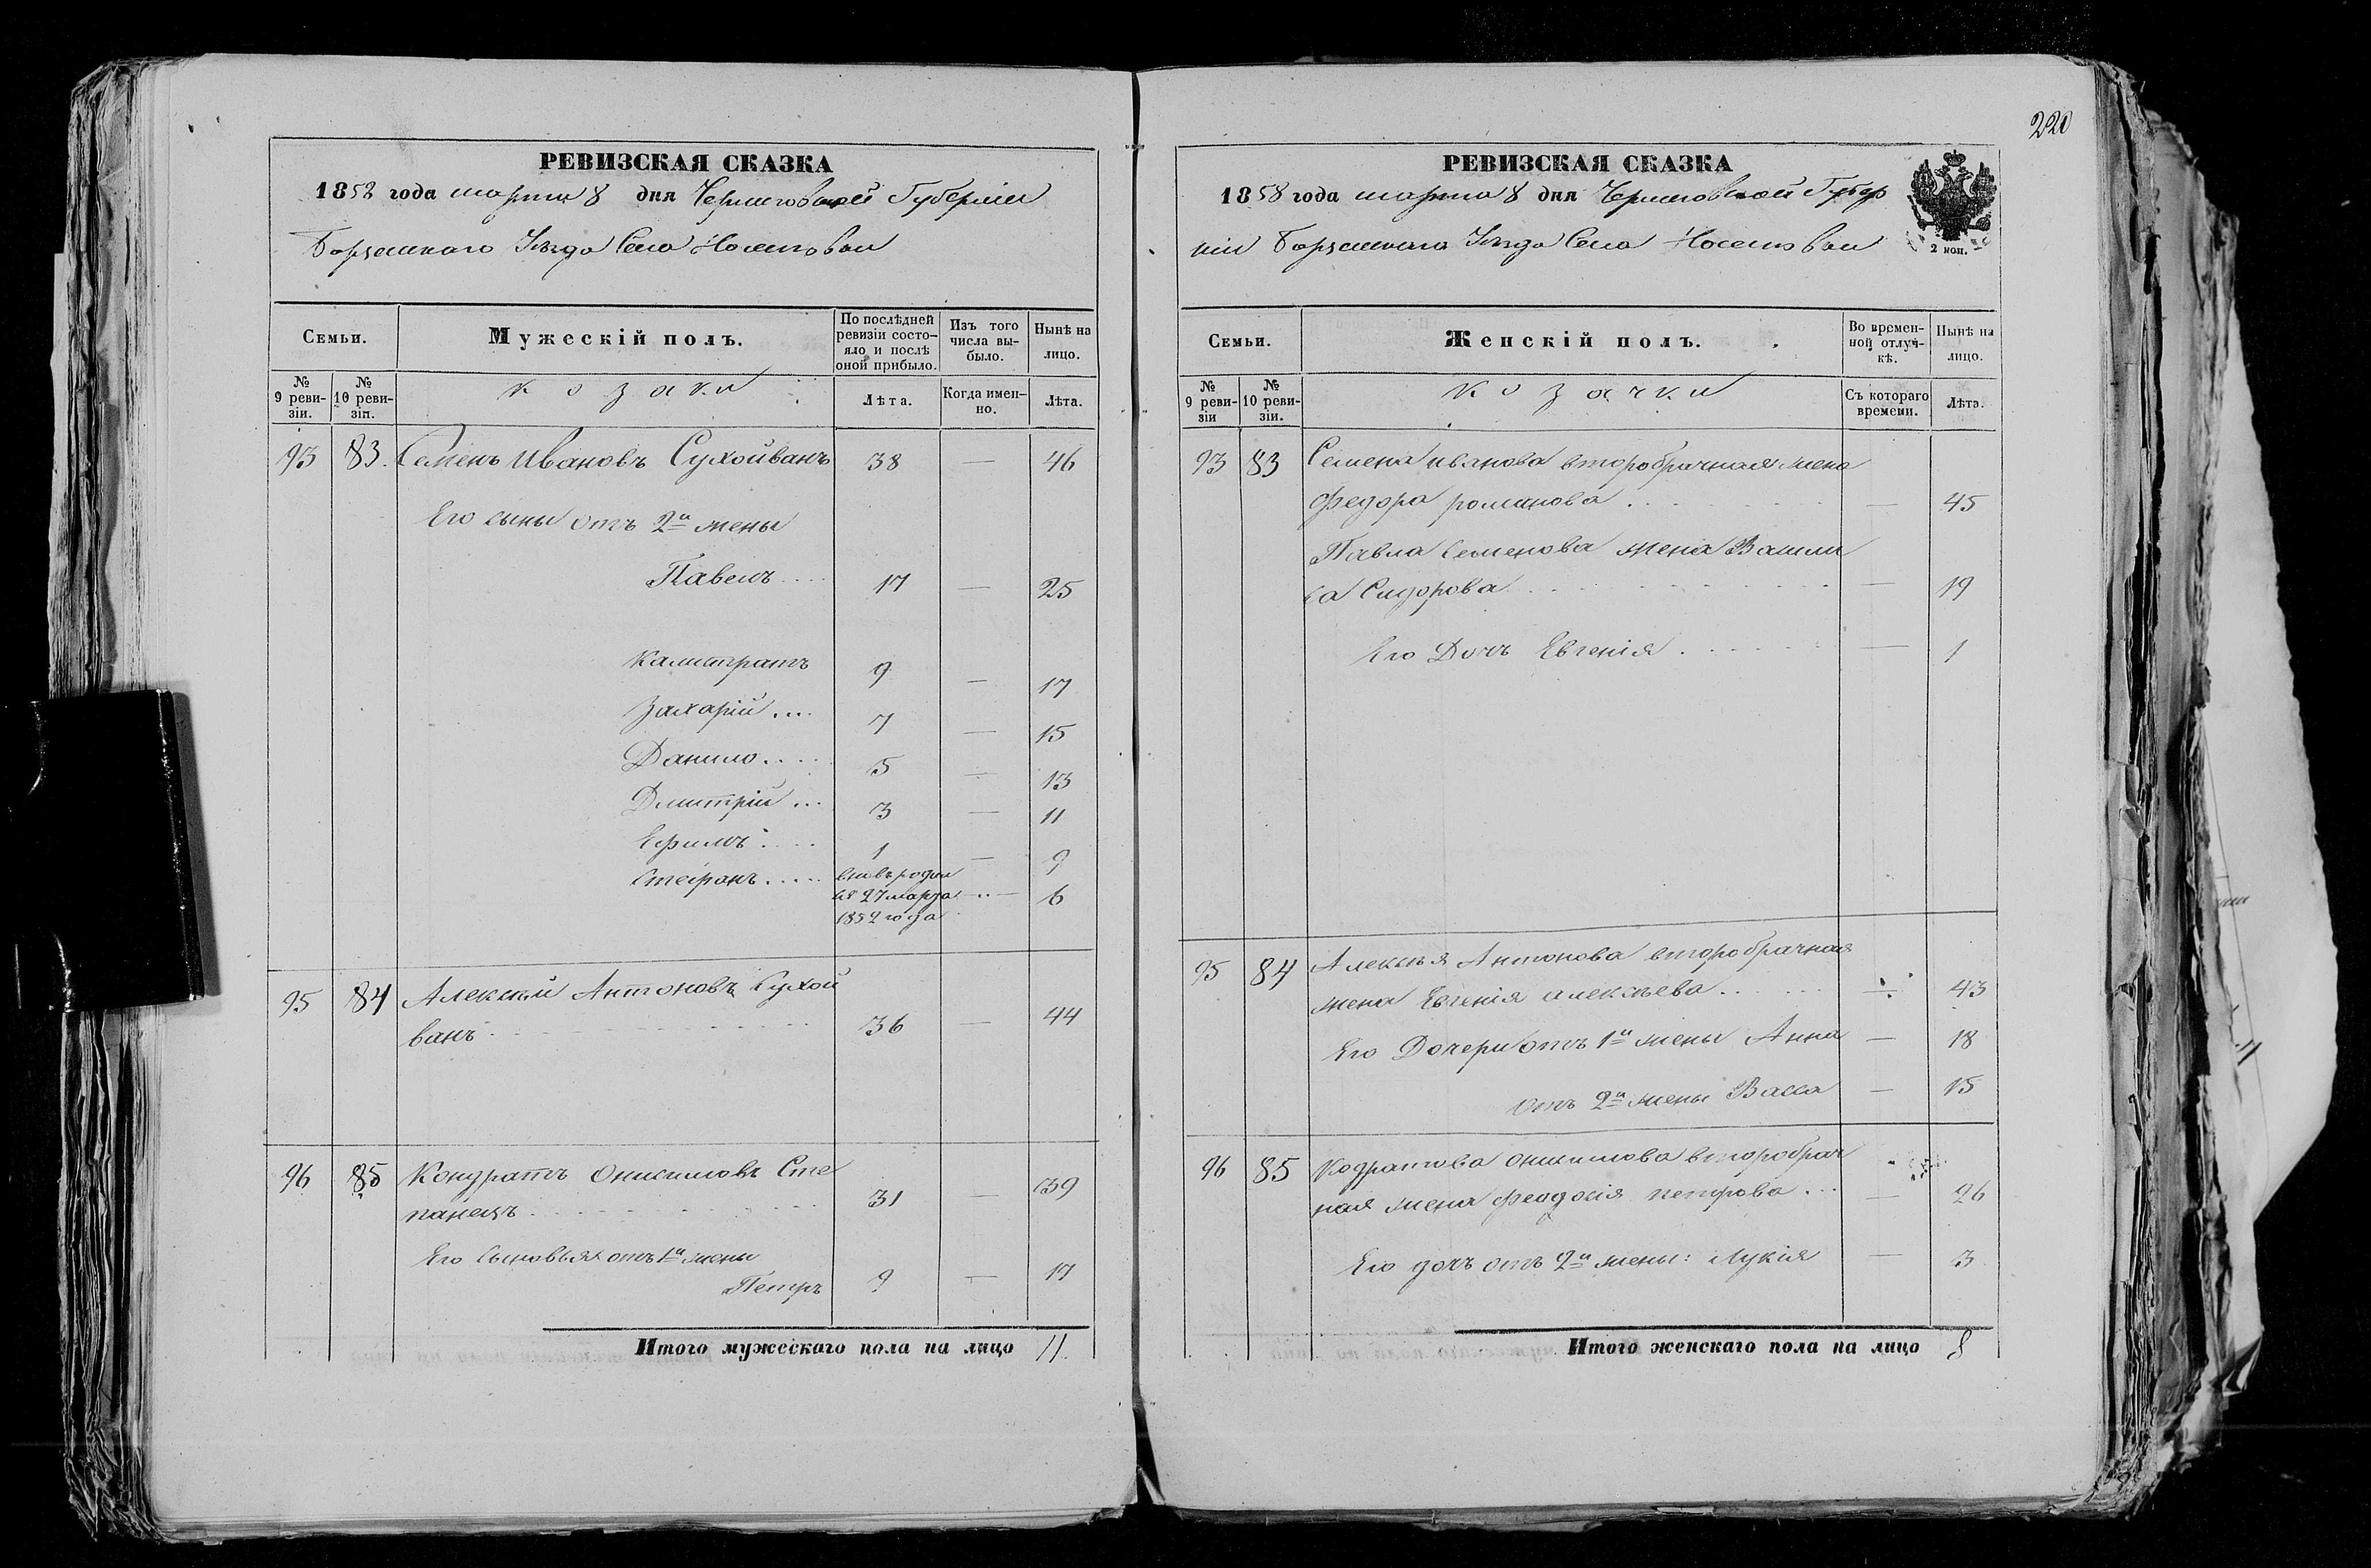 РЕВИЗСКАЯ СКАЗКА
1858 года марта 8 дня Черниговской Губернiи
Борзенского Уѣзда Села Носеловки
Семьи.
Мужескiй полъ.
По послѣдней ревизiи состояло и послѣ оной прибыло.
Изъ того числа выбыло.
Нынѣ на лицо.
№ 9 ревизiи.
№ 10 ревизiи.
козаки
Лѣта.
Когда именно.
Лѣта.
93 83. Семенъ Ивановъ Сухойванъ 38 — 46
Его сыны отъ 2й жены
Павелъ .... 17 — 25
Калистратъ 9 — 17
Захарiй .... 7 — 15
Данило .... 5 — 13
Дмитрiй ... 3 — 11
Ефимъ .... 1 — 9
Стефанъ ..... вновь родил
ся 27 марта — 6
1852 года
95 84 Алексѣй Антоновъ Сухой
ванъ 36 — 44
96 85 Кондратъ Онисимовъ Сте
панецъ 31 — 39
Его Сыновья отъ 1й жены
Петръ 9 — 17
Итого мужескаго пола на лицо 11.
220
РЕВИЗСКАЯ СКАЗКА
1858 года марта 8 дня Черниговской Губер
нiи Борзенского Уѣзда Села Носеловки
2 коп.
Семьи.
Женскiй полъ.
Во временной отлучкѣ.
Нынѣ на лицо.
№ 9 ревизiи
№ 10 ревизiи.
козачки
Съ котораго времени.
Лѣта.
93 83 Семена иванова второбрачная жена
Федора романова — 45
Павла Семенова жена Васили
са Сидорова — 19
Его Дочь Евгенiя — 1
95 84 Алексѣя Антонова второбрачная
жена Евгенiя алексѣева — 43
Его Дочери отъ 1й жены Анна — 18
отъ 2й жены Васса — 15
96 85 Кодратова онисимова второбрач
ная жена феодосiя петрова ... — 26
Его дочъ отъ 2й жены: Лукiя — 3
Итого женскаго пола на лицо 8